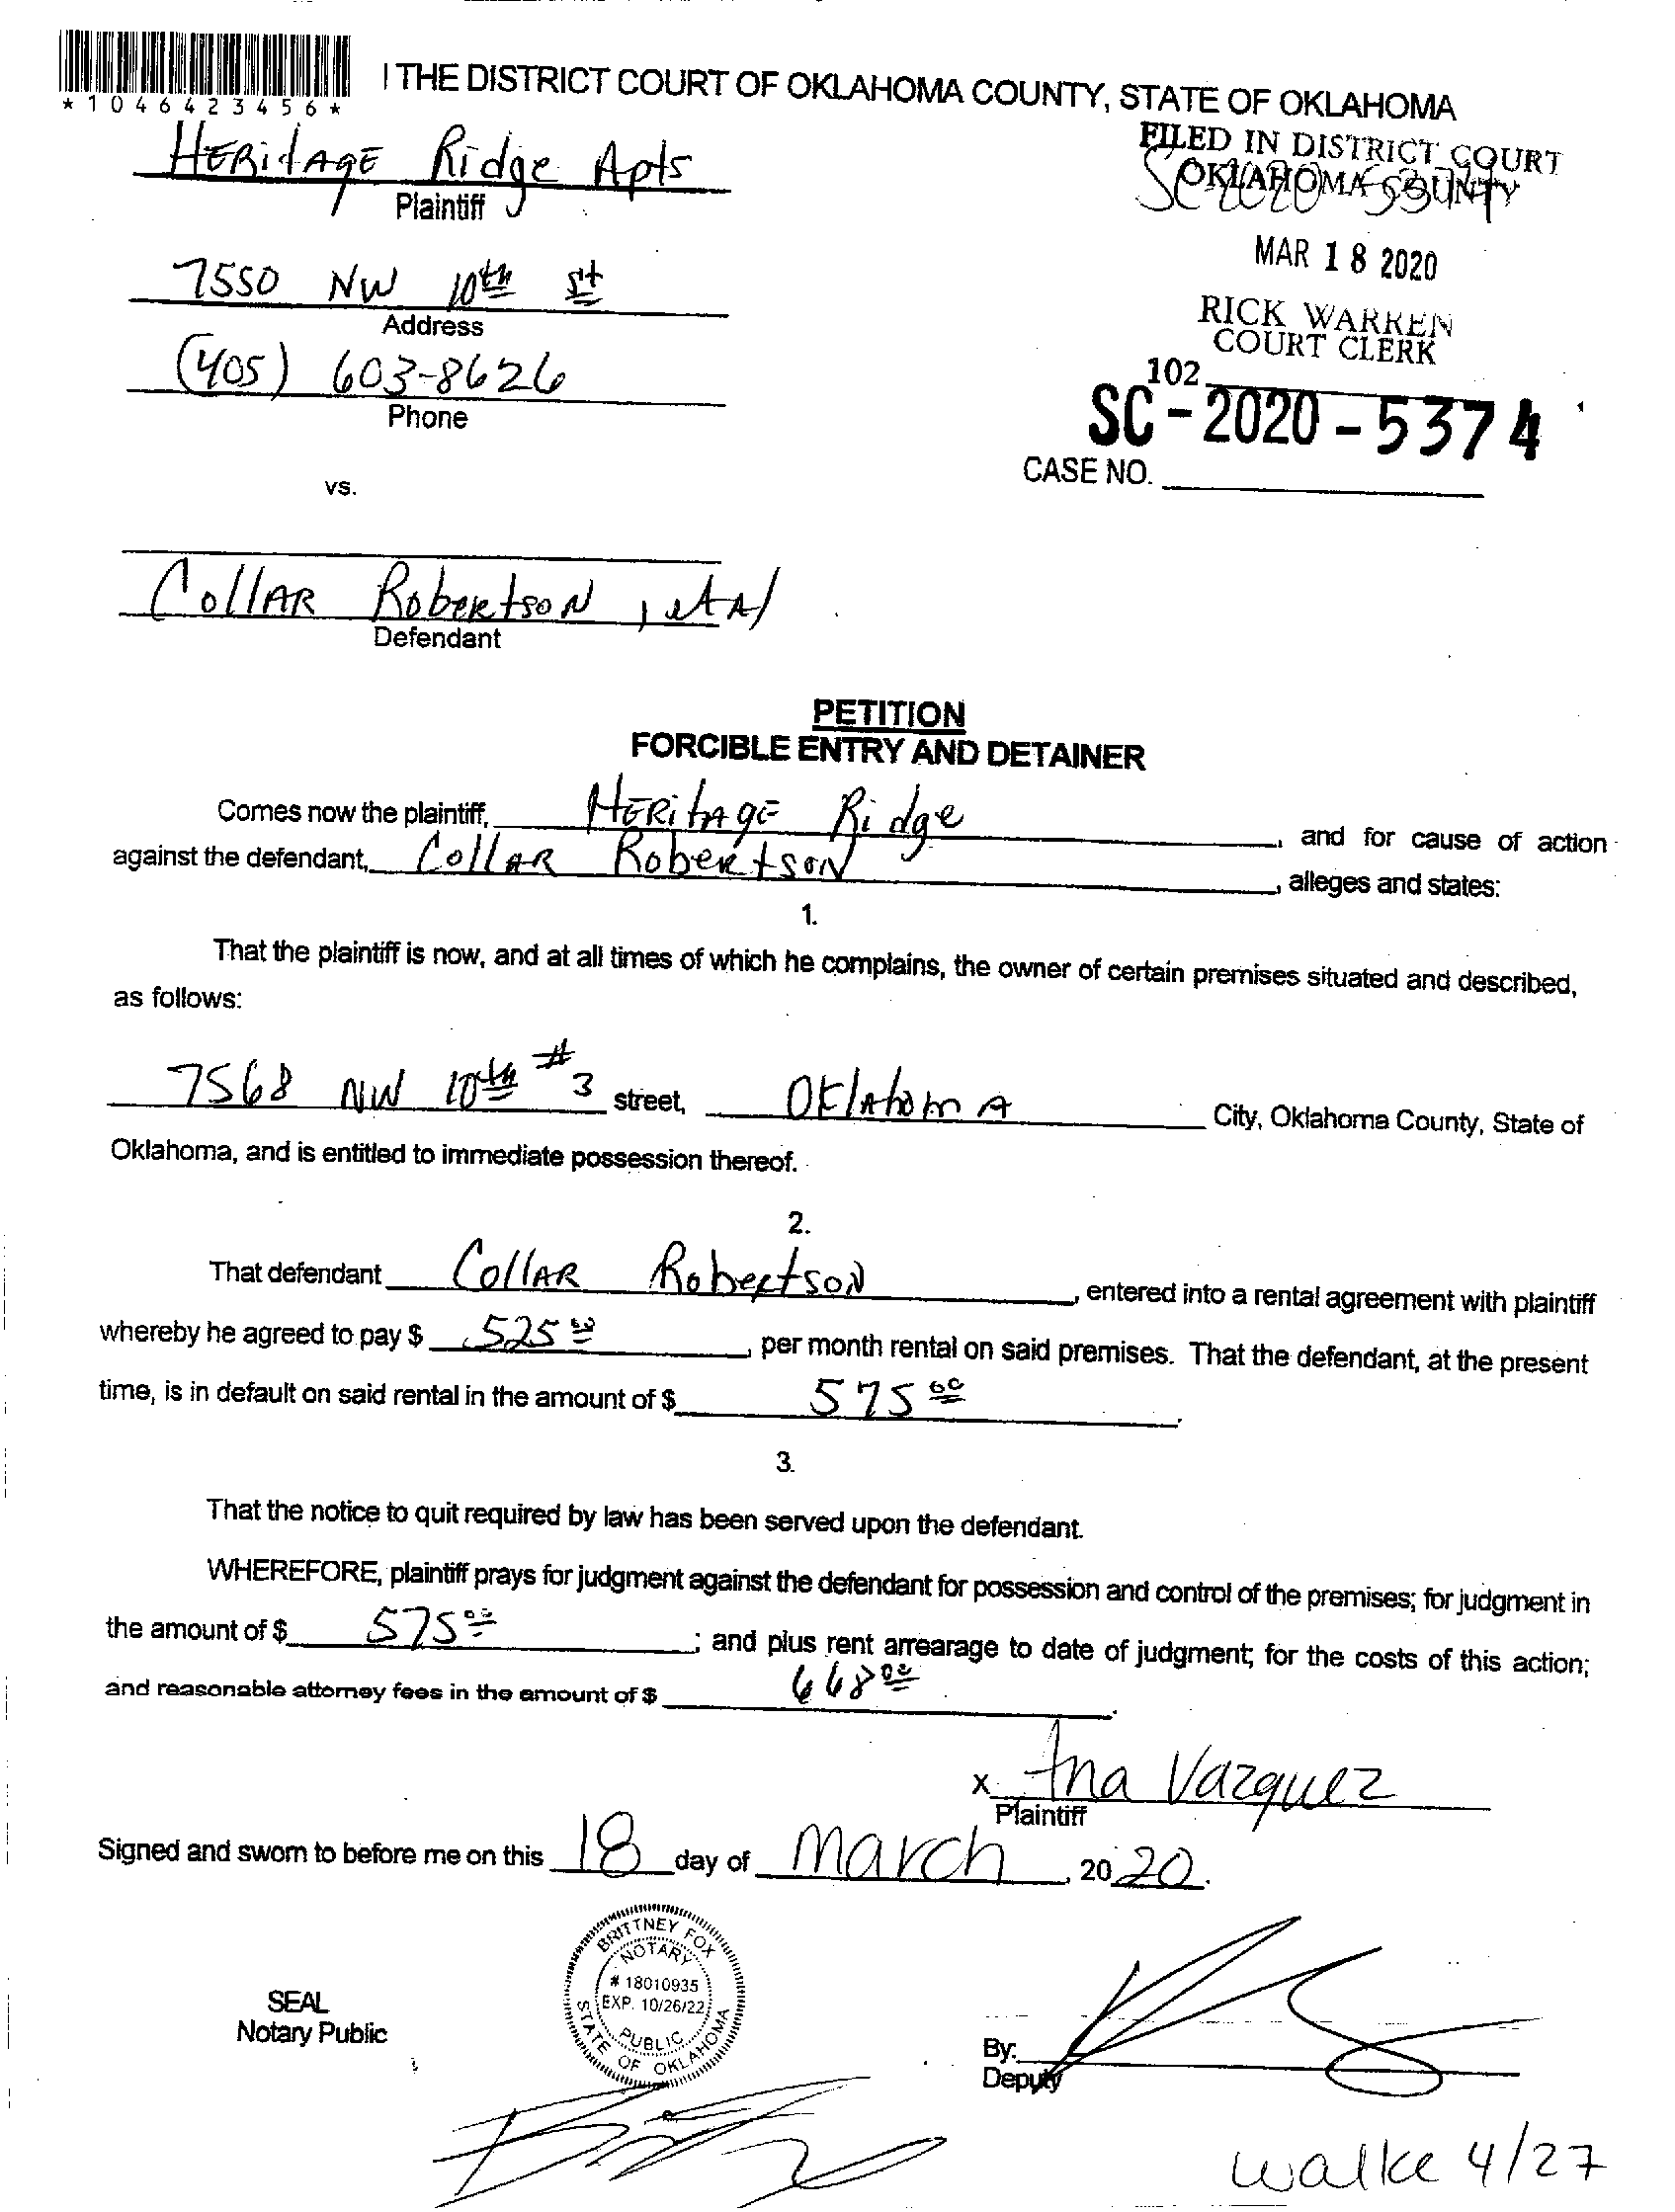 *1046423456*
I THE DISTRICT COURT OF OKLAHOMA COUNTY, STATE OF OKLAHOMA
HERitAGE Ridge Apts
Plaintiff
FILED IN DISTRICT COURT
OKLAHOMA COUNTY
SC-2020-5374
MAR 18 2020
RICK WARREN
COURT CLERK
102
7550 NW 10th St
Address
(405) 603-8626
Phone
SC-2020-5374
CASE NO.
vs.
CollAR RobeRtsoN, et Al
Defendant
PETITION
FORCIBLE ENTRY AND DETAINER
Comes now the plaintiff, HERitAgE Ridge, and for cause of action
against the defendant, CollAR RobeRtsoN, alleges and states:
1.
That the plaintiff is now, and at all times of which he complains, the owner of certain premises situated and described,
as follows:
7568 NW 10th #3 street, OklAhomA City, Oklahoma County, State of
Oklahoma, and is entitled to immediate possession thereof.
2.
That defendant CollAR RobeRtsoN, entered into a rental agreement with plaintiff
whereby he agreed to pay $ 525 00, per month rental on said premises. That the defendant, at the present
time, is in default on said rental in the amount of $ 575 00.
3.
That the notice to quit required by law has been served upon the defendant.
WHEREFORE, plaintiff prays for judgment against the defendant for possession and control of the premises; for judgment in
the amount of $ 575 00; and plus rent arrearage to date of judgment; for the costs of this action;
and reasonable attorney fees in the amount of $ 668 00.
x Ana Vazquez
Plaintiff
Signed and sworn to before me on this 18 day of March, 2020.
BRITTNEY FOX
NOTARY
# 18010935
EXP. 10/26/22
PUBLIC
STATE OF OKLAHOMA
SEAL
Notary Public
By:
Deputy
walke 4/27